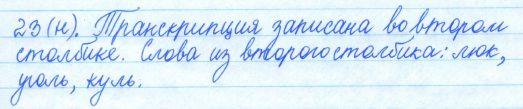 23(н). Транскрипция записана во втором
столбике. Слова из второго столбика: люк,
уголь, куль.